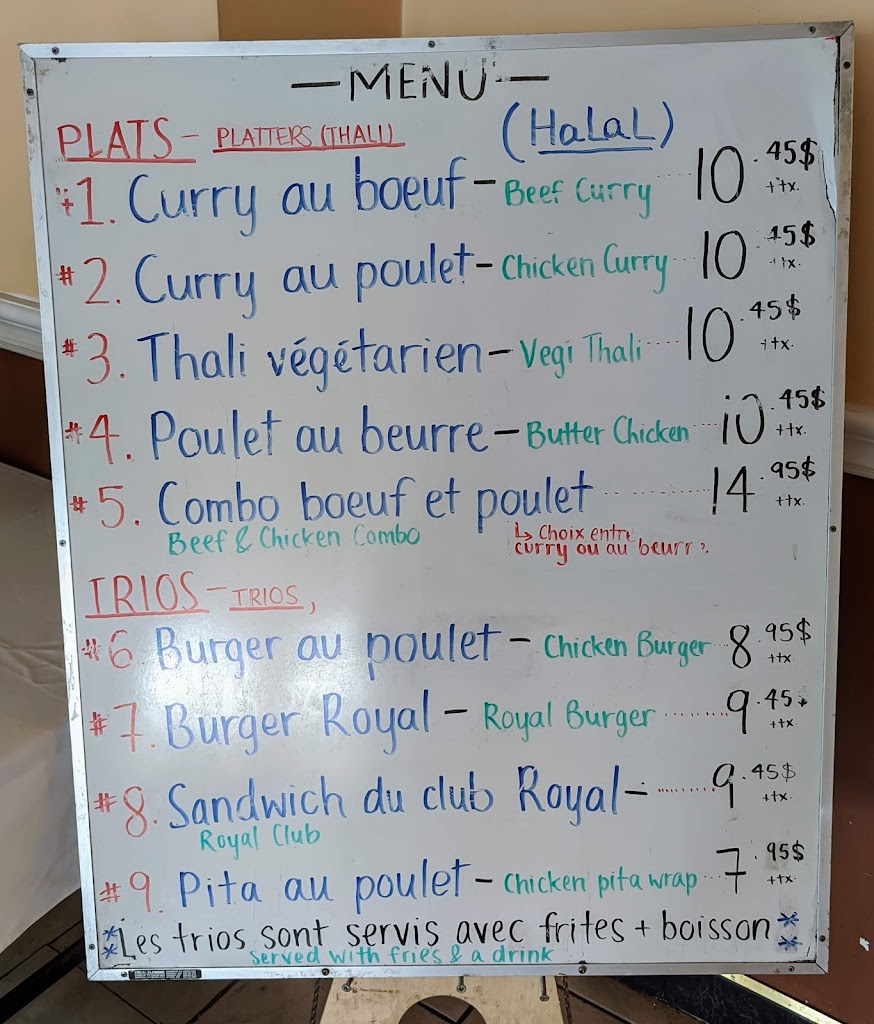 — MENU —
PLATS - PLATTERS (THALI) (HALAL)
#1. Curry au boeuf - Beef Curry 10.45$ ++x.
#2. Curry au poulet - Chicken Curry 10.45$ ++x.
#3. Thali végétarien - Vegi Thali 10.45$ ++x.
#4. Poulet au beurre - Butter Chicken 10.45$ ++x.
#5. Combo boeuf et poulet 14.95$ ++x.
Beef & Chicken Combo ↳ Choix entre
curry ou au beurr
TRIOS - TRIOS,
#6 Burger au poulet - Chicken Burger 8.95$ ++x
#7. Burger Royal - Royal Burger 9.45 ++x.
#8. Sandwich du club Royal - 9.45$ ++x.
Royal Club
#9. Pita au poulet - Chicken pita wrap 7.95$ ++x.
**Les trios sont servis avec frites + boisson**
Served with fries & a drink